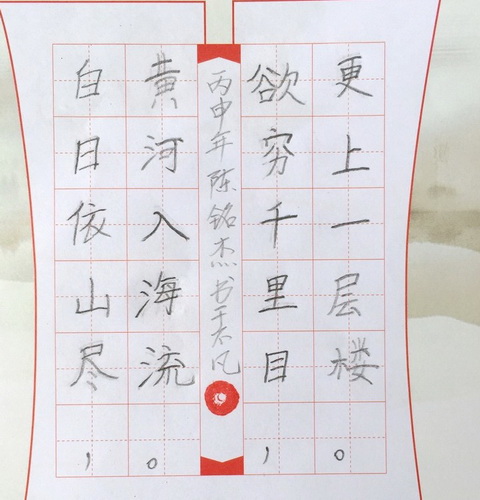 白日依山尽，
黄河入海流。
欲穷千里目，
更上一层楼。
丙申年陈铭杰书于不凡